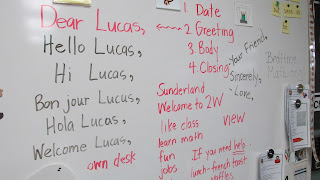 Dear Lucas,
Hello Lucas,
Hi Lucas,
Bonjour Lucus,
Hola Lucas,
Welcome Lucas,
own desk
1 Date
2. Greeting
3. Body
4. Closing
Your Friend,
Sincerely,
Love,
Sunderland
Welcome to 2W
like class view
learn math
fun
jobs
If you need help
lunch-french toast
waffles